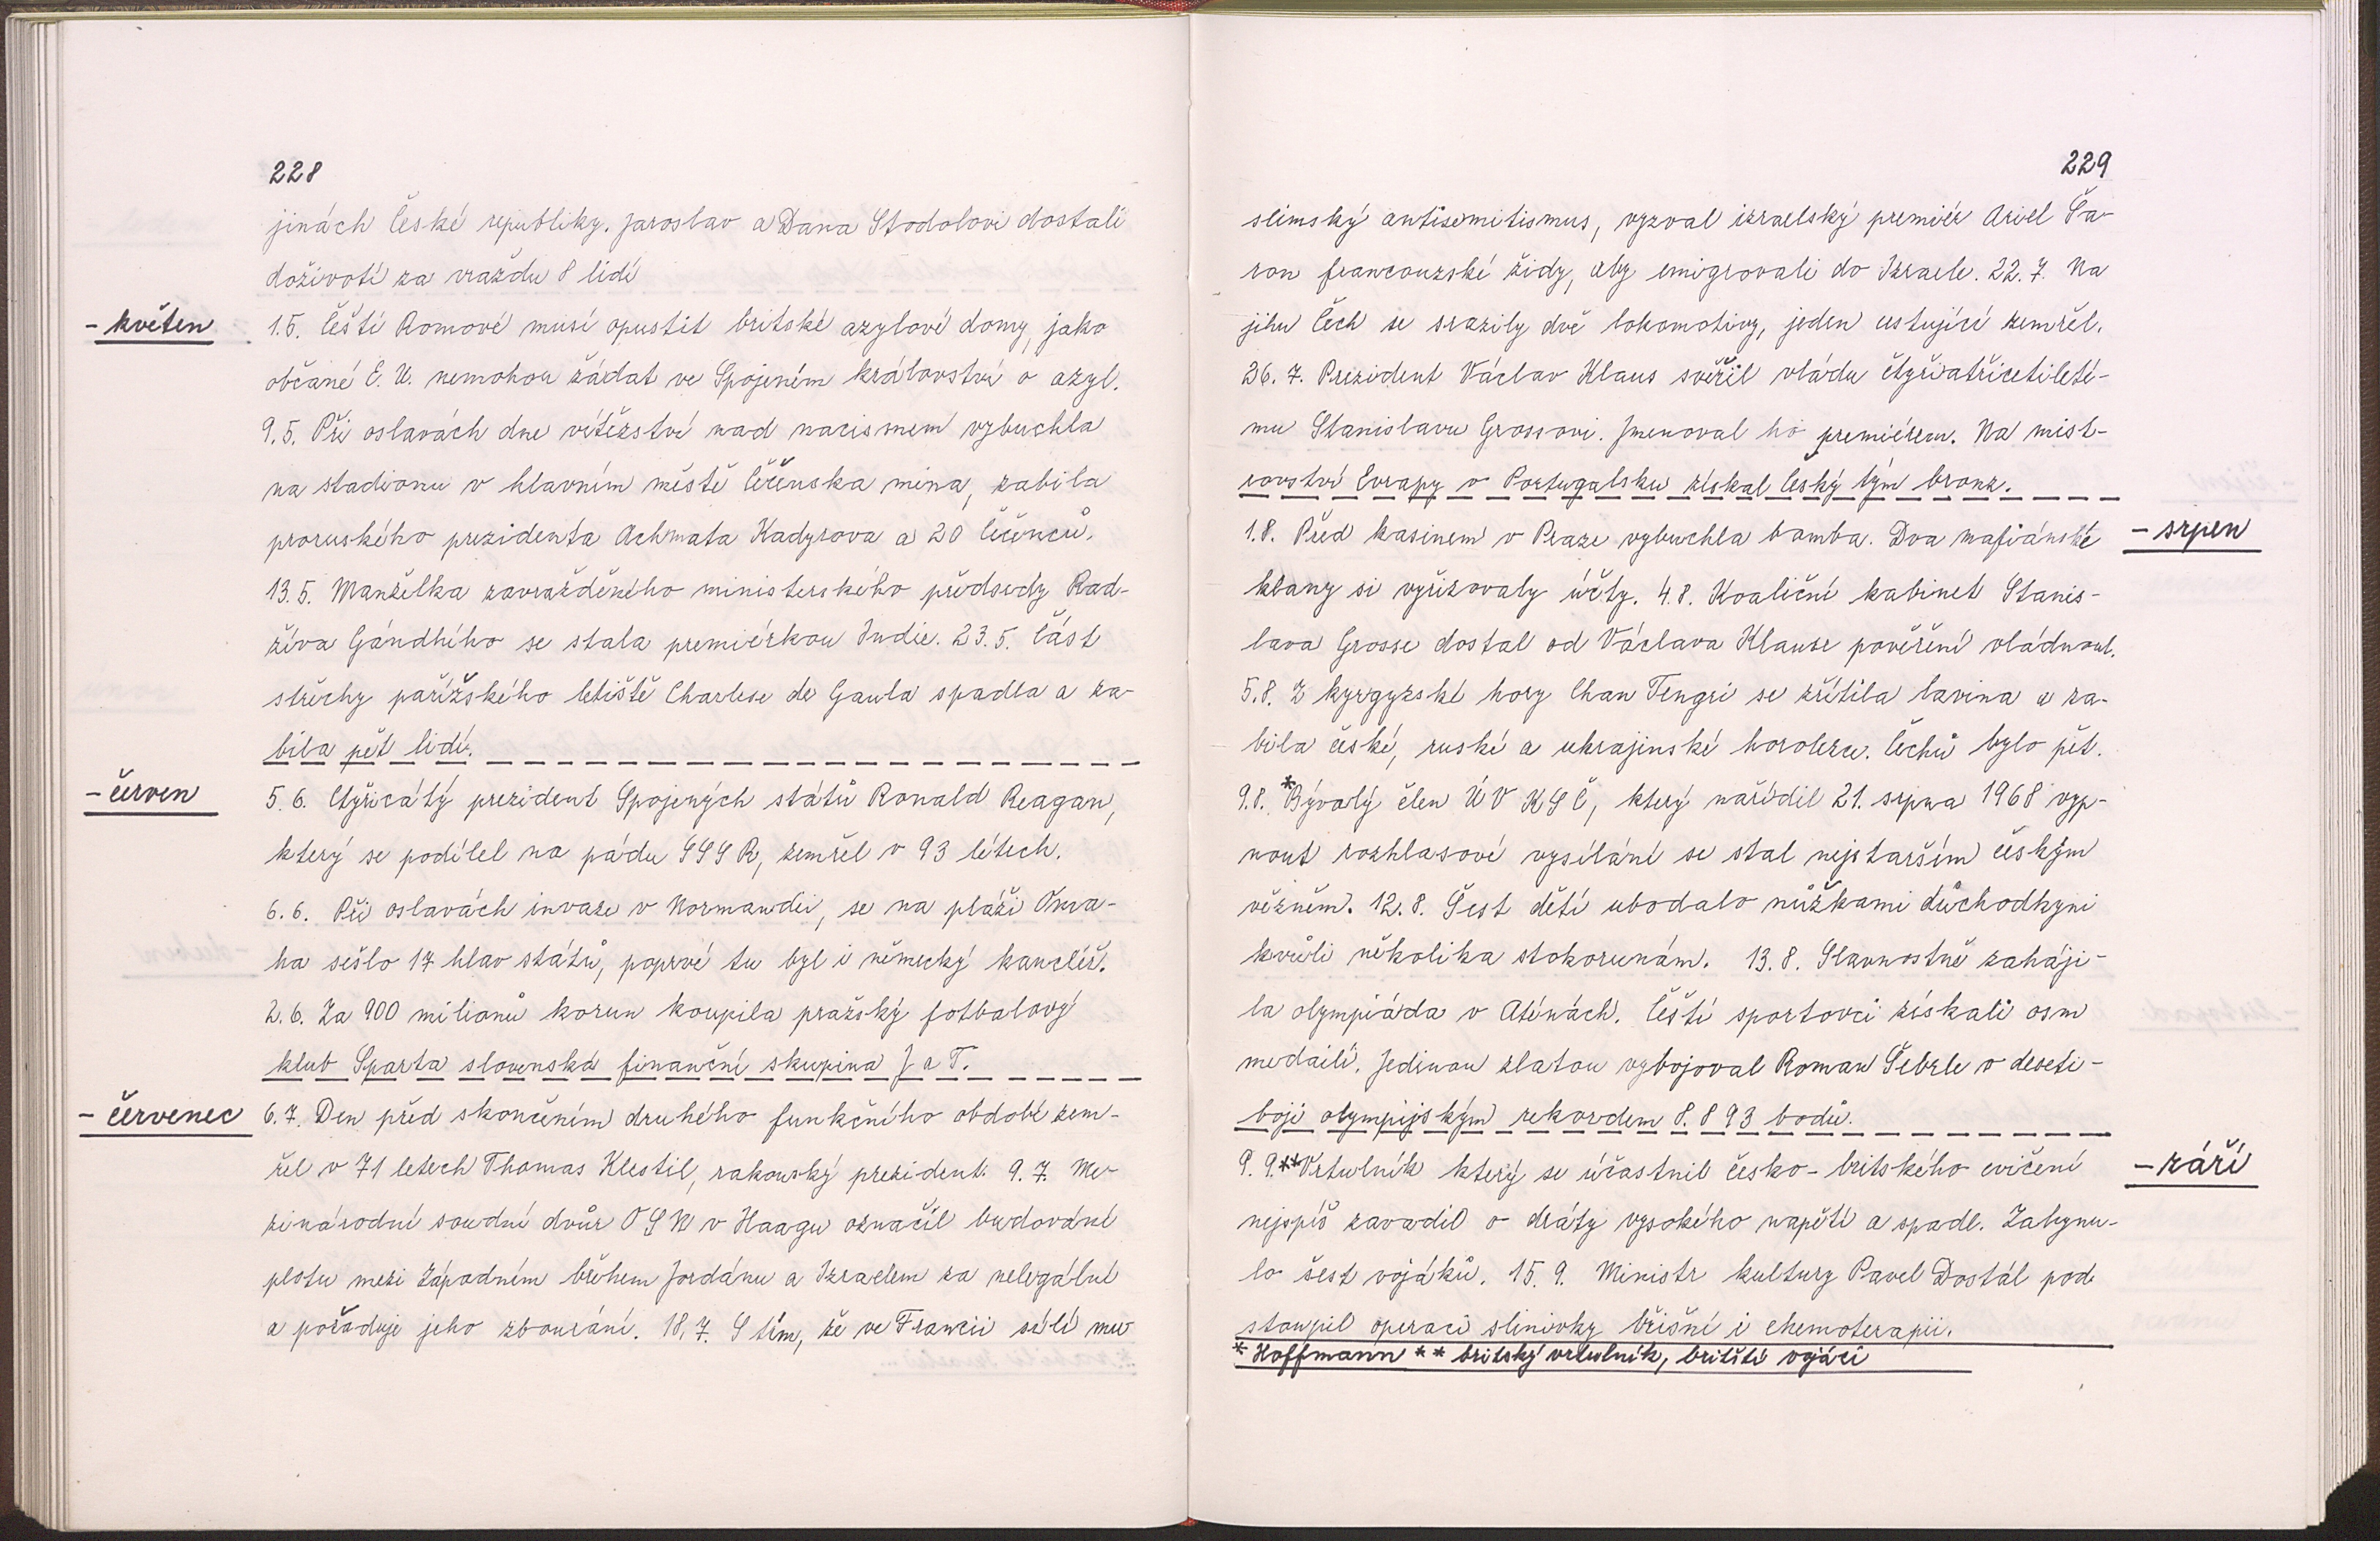 228
jinách České republiky. Jaroslav a Dana Stodolovi dostali
doživotí za vraždu 8 lidí
- květen
1.5. Čeští Romové musí opustit britské azylové domy, jako
občané E. U. nemohou žádat ve Spojeném království o azyl.
9.5. Při oslavách dne vítězství nad nacismem vybuchla
na stadionu v hlavním městě Čečenska mina, zabila
proruského prezidenta Achmata Kadyrova a 20 Čečenců.
13.5. Manželka zavražděného ministerského předsedy Rad-
žíva Gándhího se stala premiérkou Indie. 23.5. Část
střechy pařížského letiště Charlese de Gaula spadla a za-
bila pět lidí.
- červen
5.6. Čtyřicátý prezident Spojených států Ronald Reagan,
který se podílel na pádu SSSR, zemřel v 93 létech.
6.6. Při oslavách invaze v Normandii, se na pláži Oma-
ha sešlo 17 hlav států, poprvé tu byl i německý kancléř.
2.6. Za 900 milionů korun koupila pražský fotbalový
klub Sparta slovenská finanční skupina J a T.
- červenec
6.7. Den před skončením druhého funkčního období zem-
řel v 71 letech Thomas Klestil, rakouský prezident. 9.7. Me-
zinárodní soudní dvůr OSN v Haagu označil budování
plotu mezi Západním břehem Jordánu a Izraelem za nelegální
a požaduje jeho zbourání. 18.7. S tím, že ve Francii sílí mu-
229
slimský antisemitismus, vyzval izraelský premiér Ariel Ša-
ron francouzské židy, aby emigrovali do Izraele. 22.7. Na
jihu Čech se srazily dvě lokomotivy, jeden cestující zemřel.
26.7. Prezident Václav Klaus svěřil vládu čtyřiatřicetileté-
mu Stanislavu Grossovi. Jmenoval ho premiérem. Na mist-
rovství Evropy v Portugalsku získal český tým bronz.
- srpen
1.8. Před kasinem v Praze vybuchla bomba. Dva mafiánské
klany si vyřizovaly účty. 4.8. Koaliční kabinet Stanis-
lava Grosse dostal od Václava Klause pověření vládnout.
5.8. Z kyrgyzské hory Chan Tengri se zřítila lavina a za-
bila české, ruské a ukrajinské horolezce. Čechů bylo pět.
9.8. *Bývalý člen ÚV KSČ, který nařídil 21. srpna 1968 vyp-
nout rozhlasové vysílání se stal nejstarším českým
vězněm. 12.8. Šest dětí ubodalo nůžkami důchodkyni
kvůli několika stokorunám. 13.8. Slavnostně zaháji-
la olympiáda v Aténách. Čeští sportovci získali osm
medailí. Jedinou zlatou vybojoval Roman Šebrle v deseti-
boji olympijským rekordem 8.893 bodů.
- září
9.9.**Vrtulník který se účastnil česko-britského cvičení
nejspíš zavadil o dráty vysokého napětí a spadl. Zahynu-
lo šest vojáků. 15.9. Ministr kultury Pavel Dostál pod-
stoupil operaci slinivky břišní i chemoterapii.
* Hoffmann ** britský vrtulník, britští vojáci